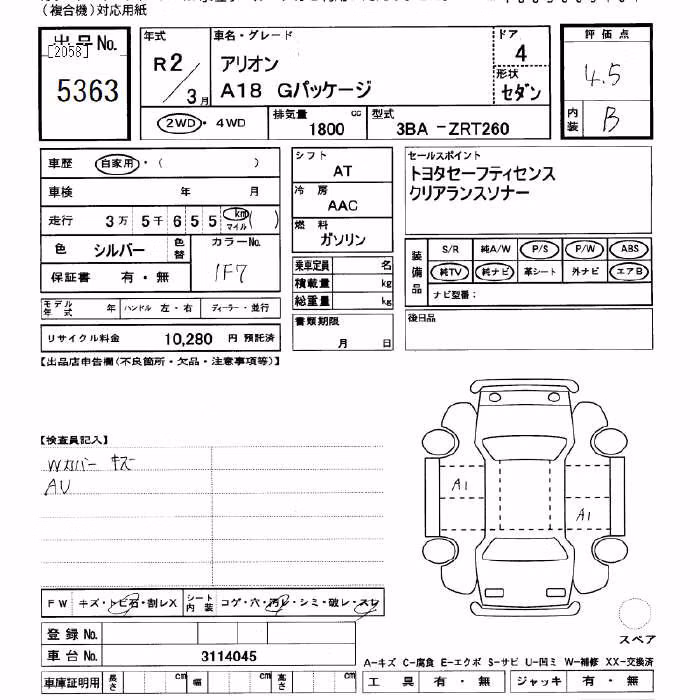 (複合機)対応用紙
出品No.
[2058]
5363
年式
R2/3月
車名・グレード
アリオン
A18 Gパッケージ
ドア
4
形状
セダン
評価点
4.5
内装
B
2WD・4WD
排気量
1800 cc
型式
3BA-ZRT260
車歴 自家用・( )
車検 年 月
走行 3万5千655 km マイル ( )
色 シルバー 色替
カラーNo.
1F7
保証書 有・無
モデル年式 年 ハンドル 左・右 ディーラー・並行
リサイクル料金 10,280 円 預託済
シフト
AT
冷房
AAC
燃料
ガソリン
乗車定員 名
積載量 kg
総重量 kg
書類期限
月 日
セールスポイント
トヨタセーフティセンス
クリアランスソナー
装備品
S/R 純A/W P/S P/W ABS
純TV 純ナビ 革シート 外ナビ エアB
ナビ型番:
後日品
【出品店申告欄(不良箇所・欠品・注意事項等)】
【検査員記入】
Wカバー キズ
AU
A1
A1
FW キズ・トビ石・割レX シート内装 コゲ・穴・汚レ・シミ・破レ・スレ
登録No.
車台No. 3114045
車庫証明用 長さ cm 幅 cm 高さ cm
スペア
A-キズ C-腐食 E-エクボ S-サビ U-凹ミ W-補修 XX-交換済
工具 有・無 ジャッキ 有・無